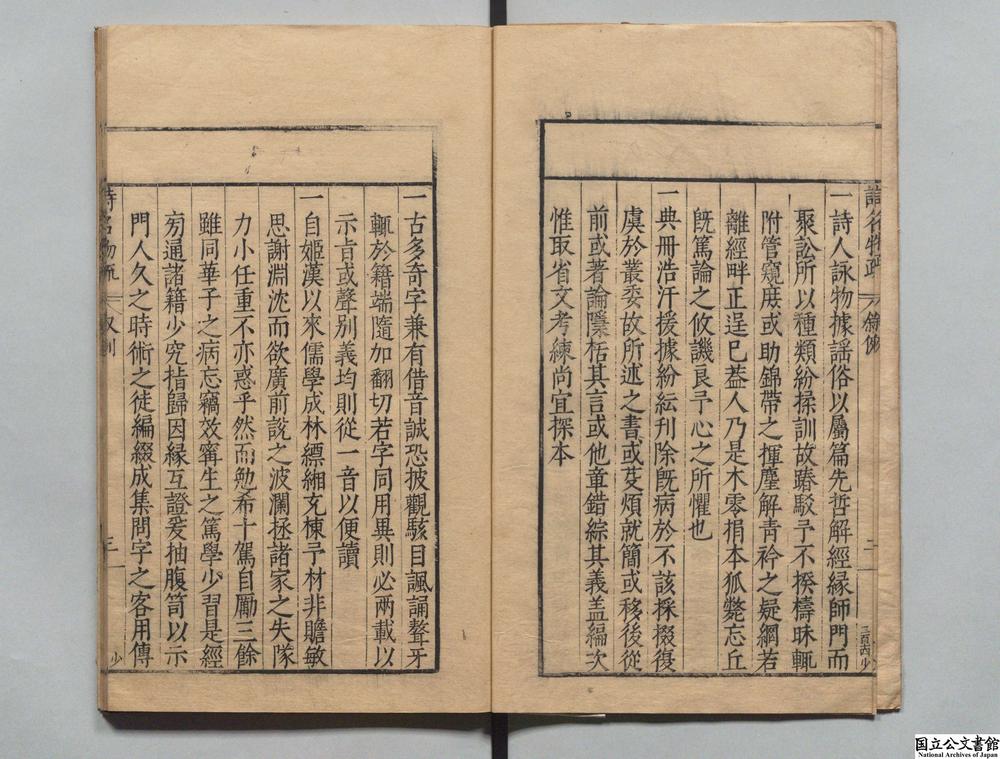 一詩人詠物據謡俗以屬篇先哲解經緣師門而
聚訟所以種類紛揉訓故踳駁予不揆檮昧輒
附管窺庶或助錦帶之揮麈解青衿之疑網若
離經畔正逞已葢人乃是木零捐本狐斃忘丘
旣篤論之攸譏良予心之所懼也
一典冊浩汗援據紛紜刋除旣病於不該採掇復
虞於叢委故所述之書或芟煩就簡或移後從
前或著論隱栝其言或他章錯綜其義葢編次
惟取省文考練尚宜探本
詩名物疏
叙例
二
三百六
少
一古多奇字兼有借音誠恐披觀駭目諷誦聱牙
輒於籍端隨加翻切若字同用異則必兩載以
示㫖或聲别義均則從一音以便讀
一自姬漢以來儒學成林縹緗充棟予材非贍敏
思謝淵沈而欲廣前說之波瀾拯諸家之失隊
力小任重不亦惑乎然而勉希十駕自勵三餘
雖同華子之病忘竊效甯生之篤學少習是經
旁通諸籍少究指歸因緣互證爰抽腹笥以示
門人久之時術之徒編綴成集問字之客用傳
詩名物疏
叙例
三
少
国立公文書館
National Archives of Japan